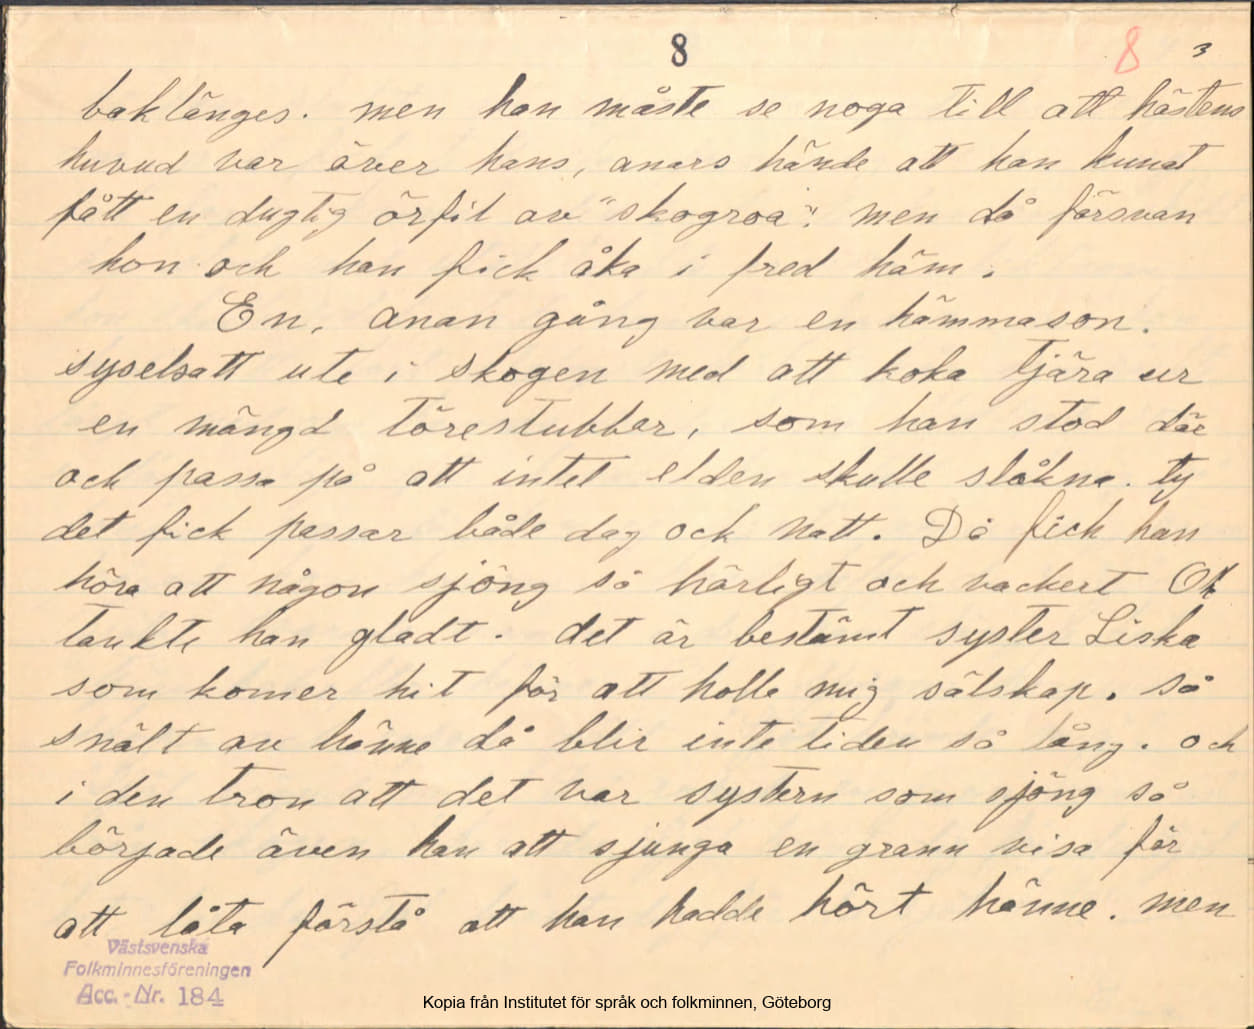 8
8 3
baklänges. men han måste se noga till att hästens
huvud var över hans, anars hände att han kunat
fått en dugtig örfil av "skogroa". men då försvan
hon och han fick åka i fred häm.
En, anan gång var en hämmason.
syselsatt ute i skogen med att koka tjära ur
en mängd törestubbar, som han stod där
och passa på att intet elden skulle slåkna. ty
det fick passar både dag ock natt. Då fick han
höra att någon sjöng så härligt och vackert Ok
tankte han gladt. det är bestämt syster Liska
som komer hit för att holla mig sälskap. så
snält av hänne då blir inte tiden så lång. och
i den tron att det var systern som sjöng så
började även han att sjunga en grann visa för
att låta förstå att han hadde hört hänne. men
Västsvenska
Folkminnesföreningen
Acc.-Nr. 184
Kopia från Institutet för språk och folkminnen, Göteborg